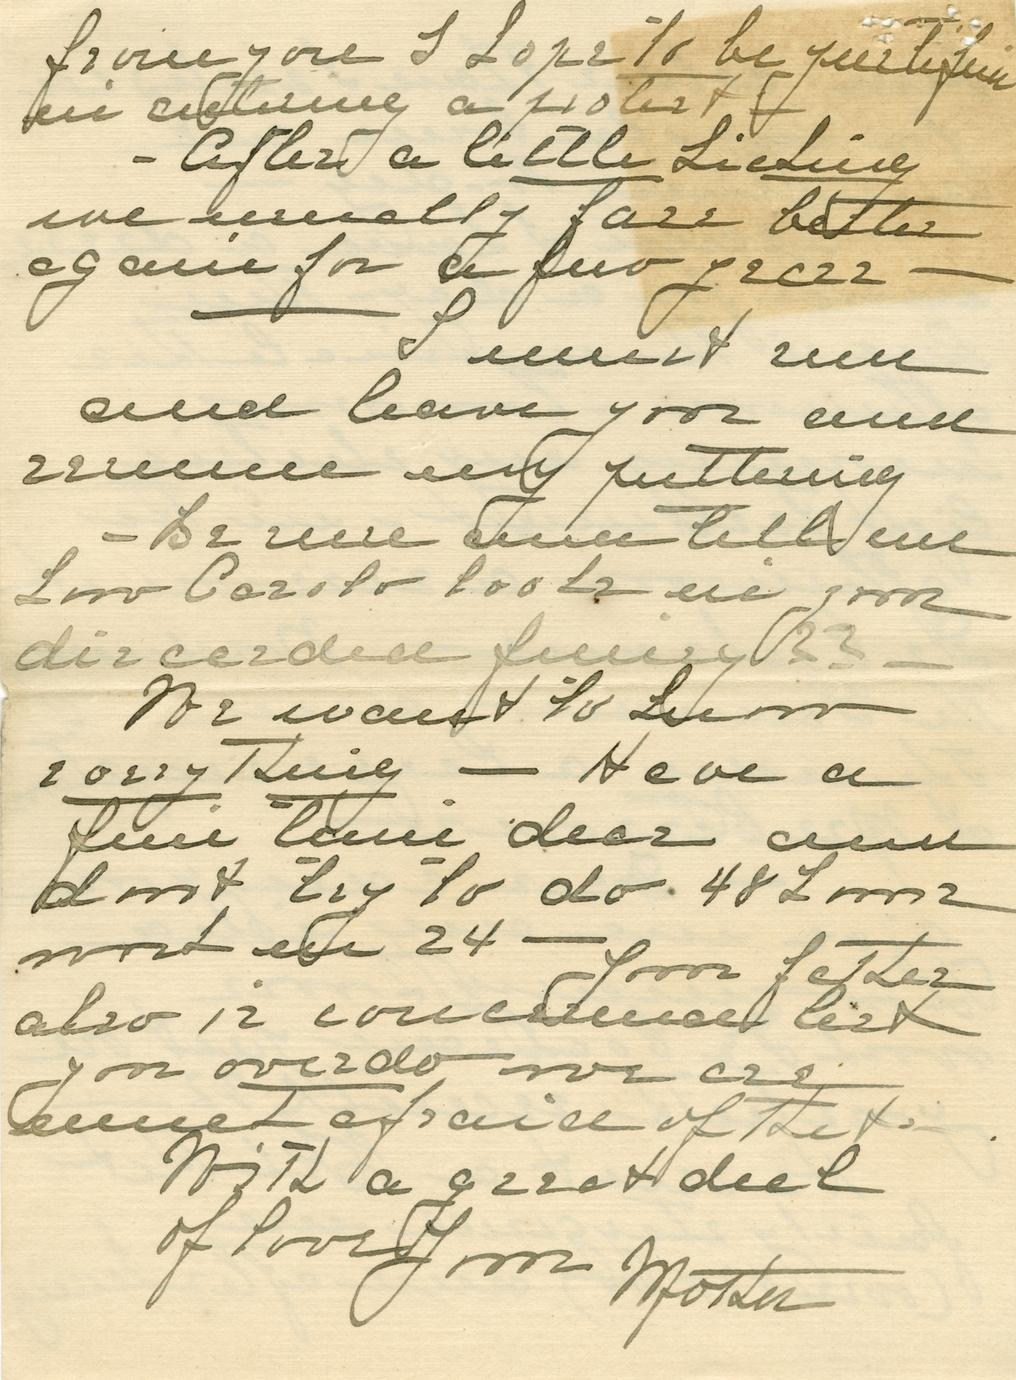 from you I hope to be justified
in entering a protest!
- After a little kicking
we usually fare better
again for a few years —
I must run
and leave you and
resume my puttering
- Be sure and tell me
how Carolo looks in your
discarded finery ?? —
We want to know
everything — Have a
fine time dear and
don't try to do 48 hours
work in 24 —
Your father
also is concerned lest
you overdo we are
much afraid of that.
With a great deal
of love Your Mother